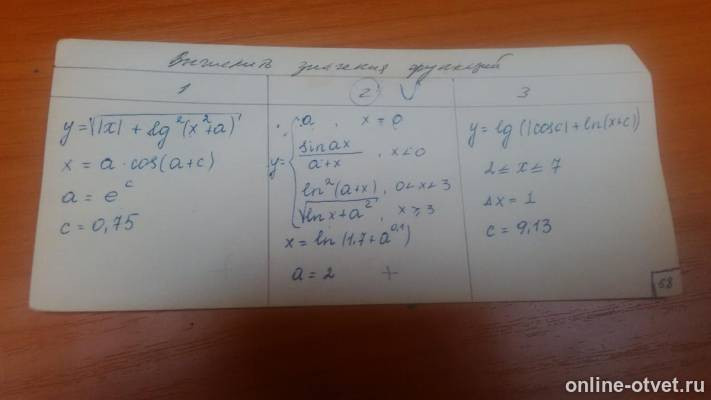 Вычислить значения функций
1
y = √|x| + lg²(x²+a)
x = a · cos(a+c)
a = e^c
c = 0,75
2
y = { a, x = 0
sin ax / a+x, x < 0
ln²(a+x), 0 < x < 3
√ln x + a², x ≥ 3
x = ln(1,7 + a^0,1)
a = 2 +
3
y = lg(|cos c| + ln(x+c))
2 ≤ x ≤ 7
Δx = 1
c = 9,13
58
online-otvet.ru